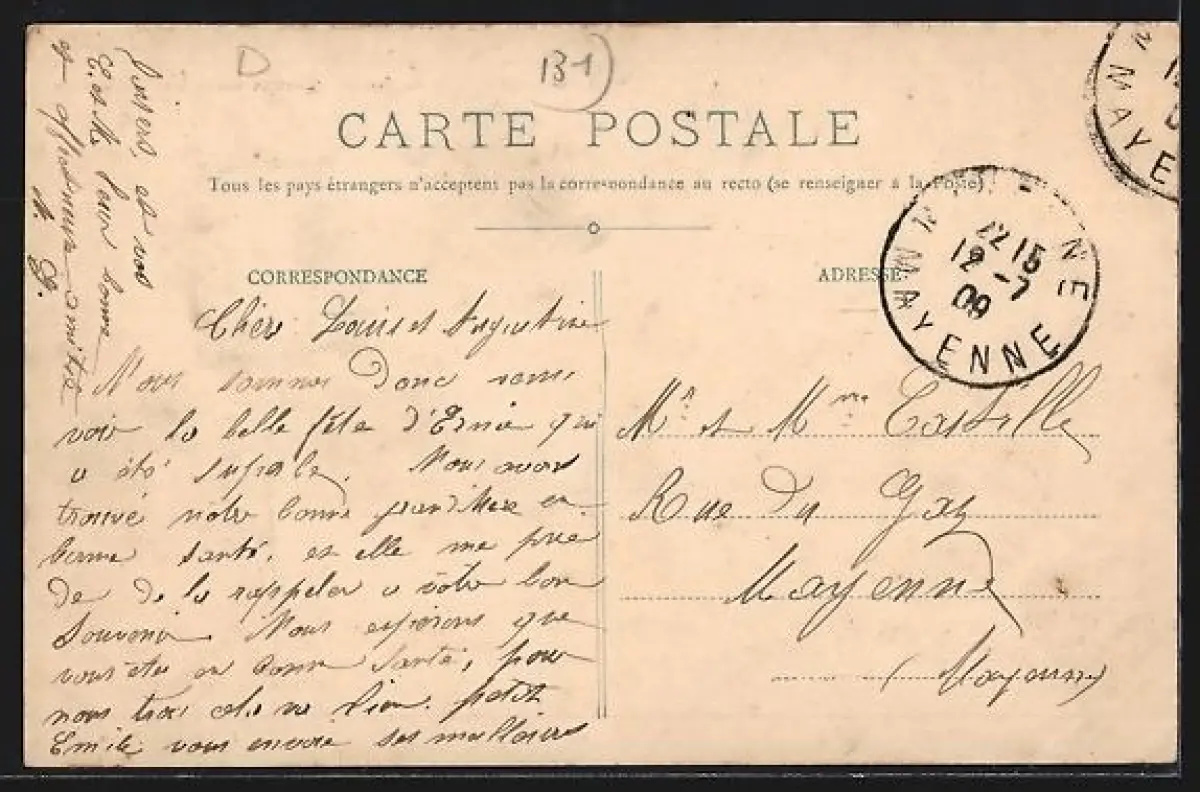 D
B1
CARTE POSTALE
Tous les pays étrangers n'acceptent pas la correspondance au recto (se renseigner à la Poste)
CORRESPONDANCE
Chers Louis et Augustine
Nous sommes donc venu
voir la belle fête d'Ernée qui
a été superbe. Nous avons
trouvé notre bonne grand'Mère en
bonne santé, et elle me prie
de de la rappeler a votre bon
Souvenir. Nous espérons que
vous êtes en bonne santé, pour
nous trois cela va bien. petit
Emile vous envoie ses meilleurs
baisers, et vos
E. et M. leur bonne
et affectueuse amitié
ADRESSE
Mr et Mme Castille
Rue Du
Mayenne
(Mayenne)
MAYENNE
22 15
12 -7
09
MAYENNE
MAYE